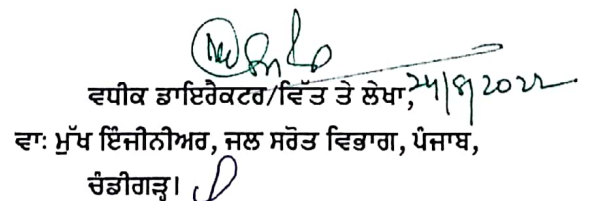 ਵਧੀਕ ਡਾਇਰੈਕਟਰ/ਵਿੱਤ ਤੇ ਲੇਖਾ, 24/8/2022
ਵਾ: ਮੁੱਖ ਇੰਜੀਨੀਅਰ, ਜਲ ਸਰੋਤ ਵਿਭਾਗ, ਪੰਜਾਬ,
ਚੰਡੀਗੜ੍ਹ।